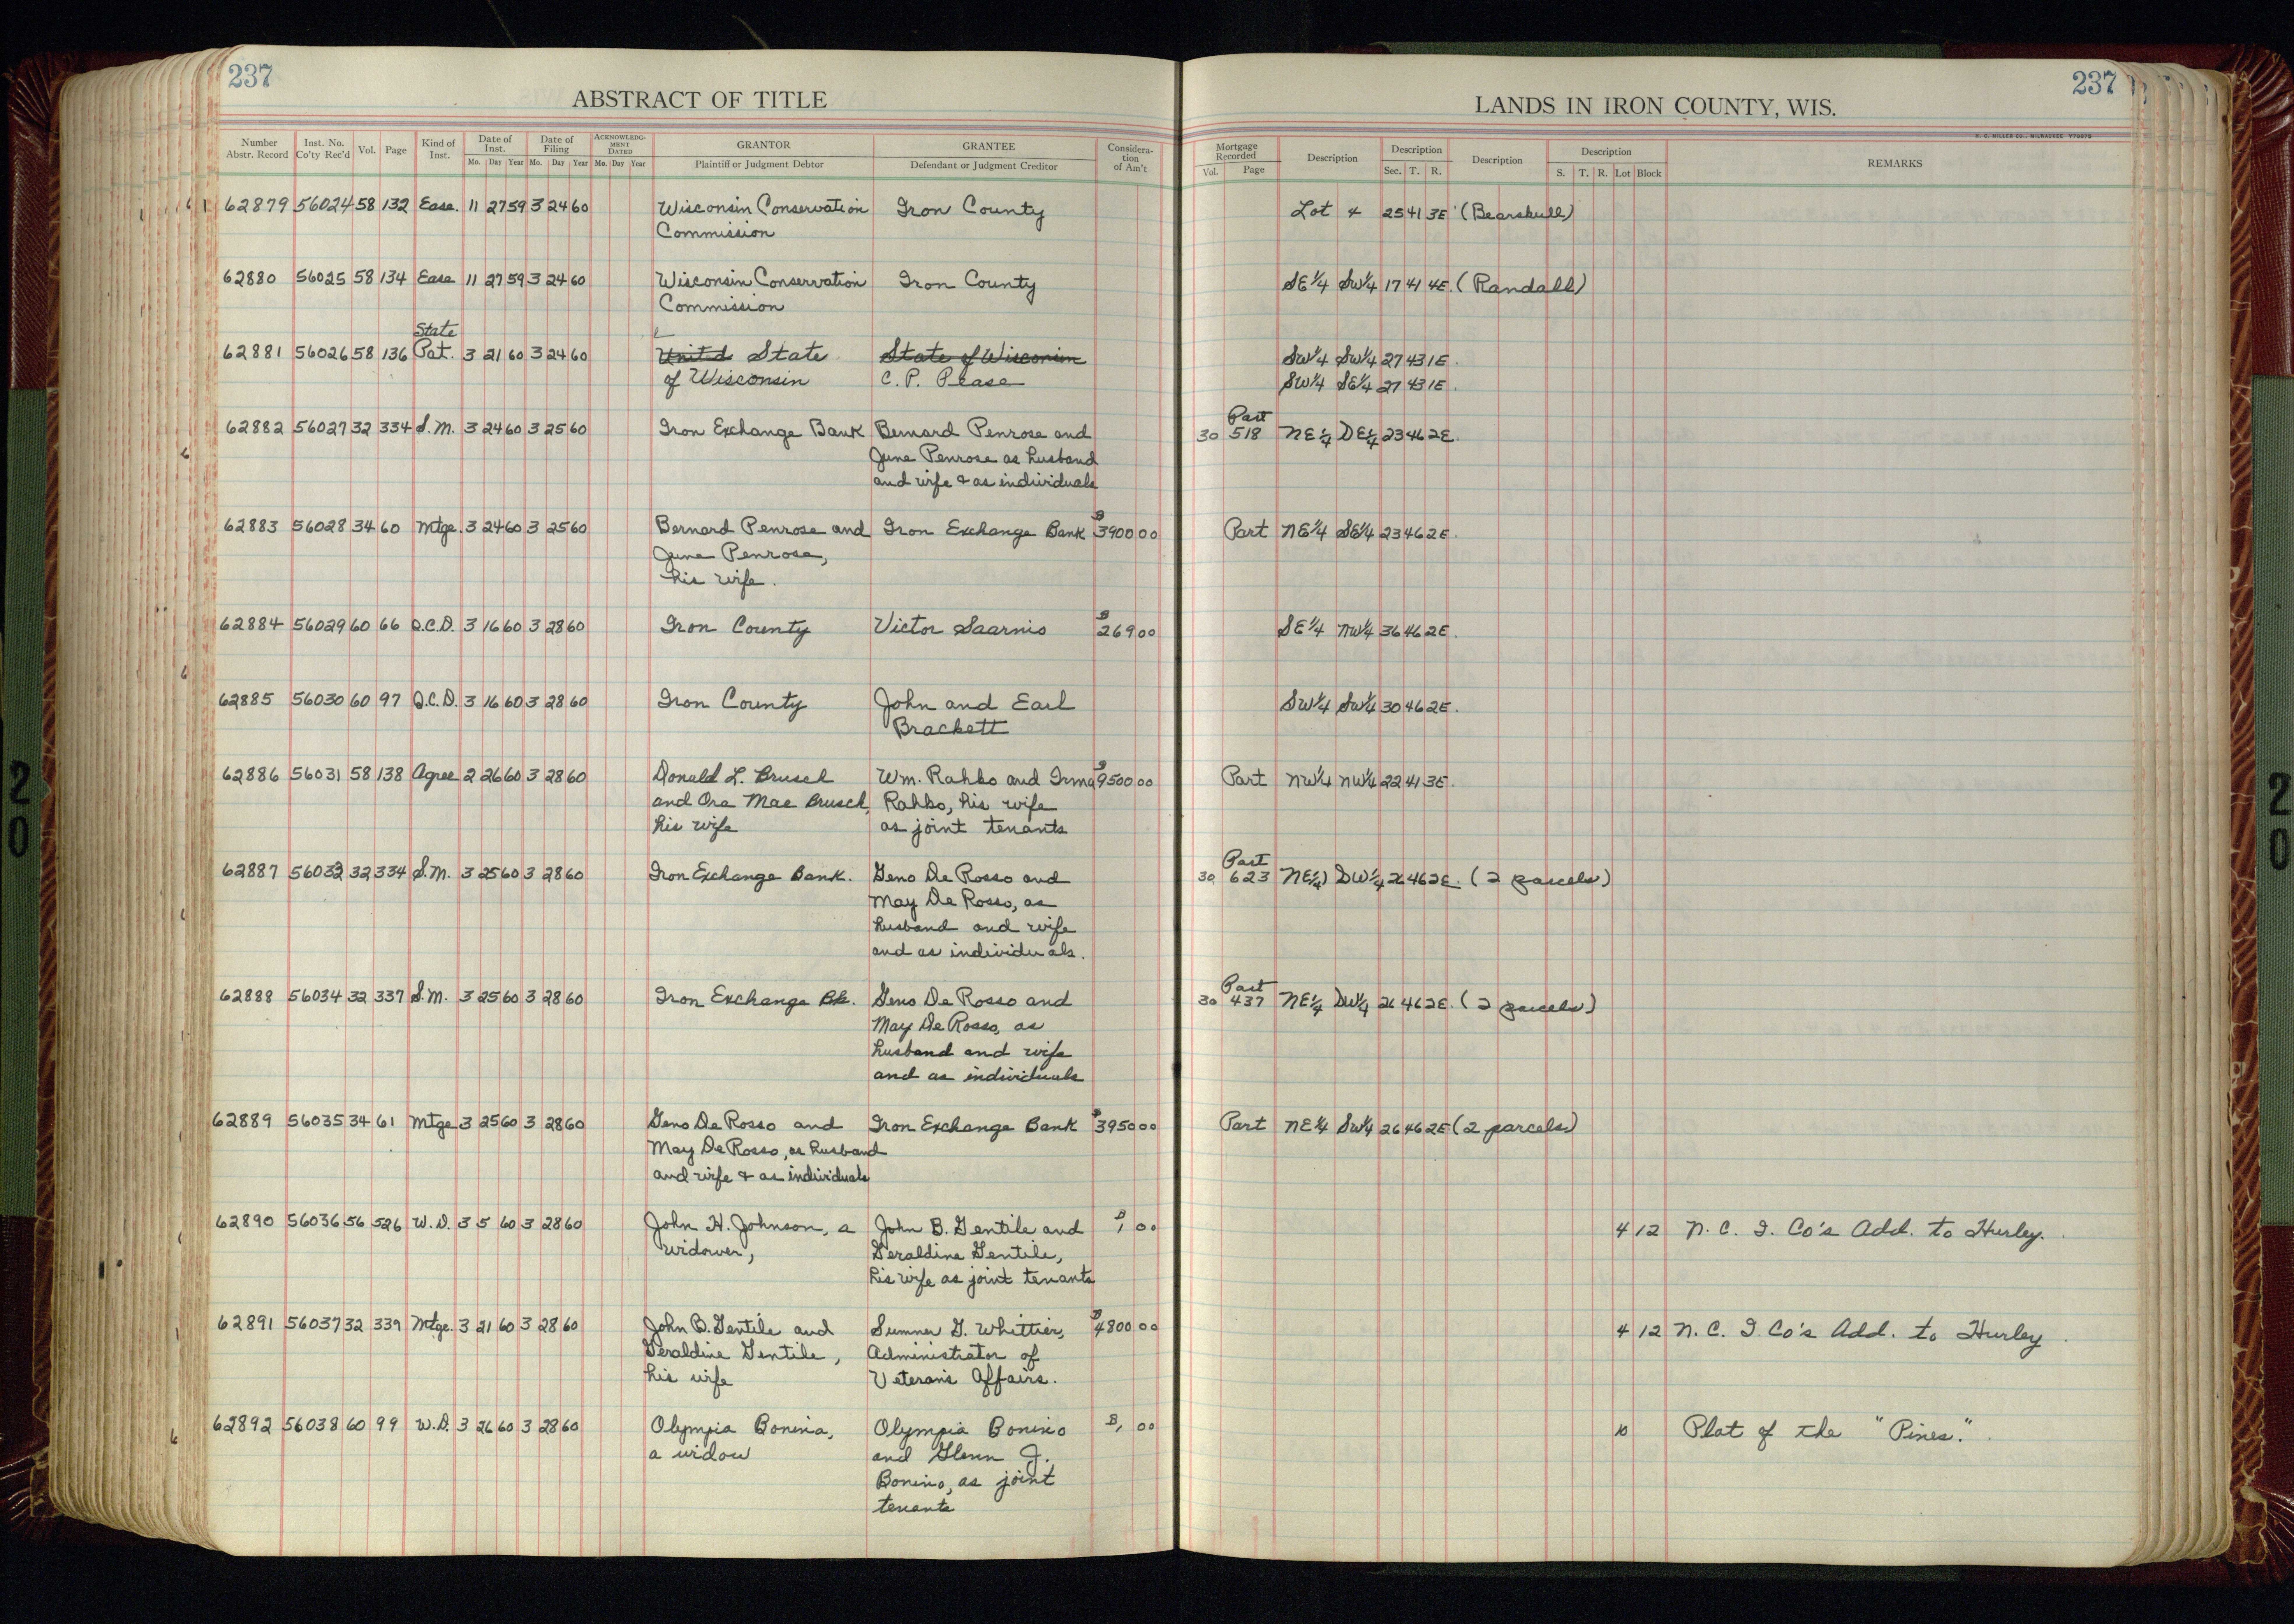 237
ABSTRACT OF TITLE
Number Abstr. Record | Inst. No. Co'ty Rec'd | Vol. | Page | Kind of Inst. | Date of Inst. Mo. Day Year | Date of Filing Mo. Day Year | ACKNOWLEDGMENT DATED Mo. Day Year | GRANTOR Plaintiff or Judgment Debtor | GRANTEE Defendant or Judgment Creditor | Consideration of Am't
62879 56024 58 132 Ease. 11 27 59 3 24 60 Wisconsin Conservation Iron County
Commission
62880 56025 58 134 Ease 11 27 59 3 24 60 Wisconsin Conservation Iron County
Commission
State
62881 56026 58 136 Pat. 3 21 60 3 24 60 United State State of Wisconsin
of Wisconsin C. P. Pease
62882 56027 32 334 S.M. 3 24 60 3 25 60 Iron Exchange Bank Bernard Penrose and
June Penrose as husband
and wife & as individuals
62883 56028 34 60 Mtge. 3 24 60 3 25 60 Bernard Penrose and Iron Exchange Bank $3900 00
June Penrose,
his wife.
62884 56029 60 66 Q.C.D. 3 16 60 3 28 60 Iron County Victor Saarnio $269 00
62885 56030 60 97 Q.C.D. 3 16 60 3 28 60 Iron County John and Earl
Brackett
62886 56031 58 138 Agree 2 26 60 3 28 60 Donald L. Brusel Wm. Rahko and Irma $9500 00
and Ora Mae Brusel, Rahko, his wife
his wife as joint tenants
62887 56033 32 334 S.M. 3 25 60 3 28 60 Iron Exchange Bank. Geno De Rosso and
May De Rosso, as
husband and wife
and as individuals.
62888 56034 32 337 S.M. 3 25 60 3 28 60 Iron Exchange Bk. Geno De Rosso and
May De Rosso, as
husband and wife
and as individuals
62889 56035 34 61 Mtge 3 25 60 3 28 60 Geno De Rosso and Iron Exchange Bank $3950 00
May De Rosso, as husband
and wife & as individuals
62890 56036 56 526 W.D. 3 5 60 3 28 60 John H. Johnson, a John B. Gentile and $1 00
widower, Geraldine Gentile,
his wife as joint tenants
62891 56037 32 339 Mtge. 3 21 60 3 28 60 John B. Gentile and Sumner G. Whittier, $4800 00
Geraldine Gentile, Administrator of
his wife Veterans Affairs.
62892 56038 60 99 W.D. 3 26 60 3 28 60 Olympia Bonina, Olympia Bonino $1 00
a widow and Glenn J.
Bonino, as joint
tenants
237
LANDS IN IRON COUNTY, WIS.
H. C. MILLER CO., MILWAUKEE
Mortgage Recorded Vol. Page | Description | Description Sec. T. R. | Description | Description S. T. R. Lot Block | REMARKS
Lot 4 25 41 3E (Bearskull)
SE¼ SW¼ 17 41 4E. (Randall)
SW¼ SW¼ 27 43 1E.
SW¼ SE¼ 27 43 1E.
Part
30 518 NE¼ SE¼ 23 46 2E.
Part NE¼ SE¼ 23 46 2E.
SE¼ NW¼ 36 46 2E.
SW¼ SW¼ 30 46 2E.
Part NW¼ NW¼ 22 41 3E.
Part
30 623 NE¼ SW¼ 26 46 2E. (2 parcels)
Part
30 437 NE¼ SW¼ 26 46 2E. (2 parcels)
Part NE¼ SW¼ 26 46 2E (2 parcels)
4 12 N. C. I. Co's Add. to Hurley.
4 12 N. C. I Co's Add. to Hurley.
10 Plat of the "Pines".
20
20